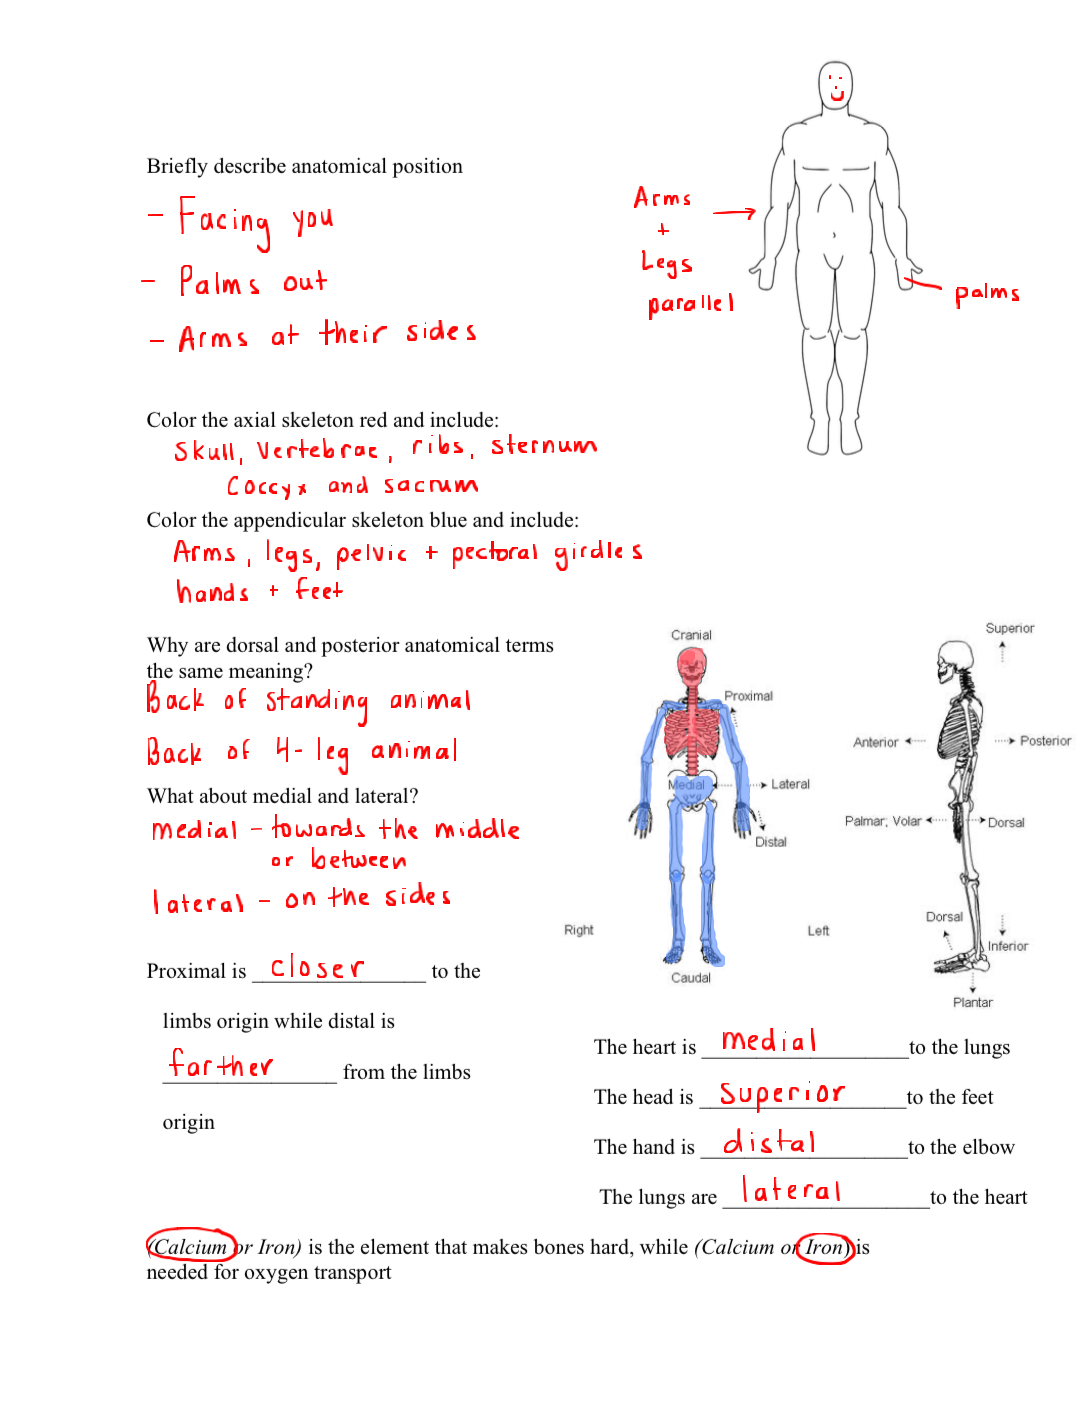 Briefly describe anatomical position
- Facing you
- Palms out
- Arms at their sides
Arms
+
Legs
parallel
palms
Color the axial skeleton red and include:
Skull, Vertebrae, ribs, sternum
Coccyx and sacrum
Color the appendicular skeleton blue and include:
Arms, legs, pelvic + pectoral girdles
hands + feet
Why are dorsal and posterior anatomical terms
the same meaning?
Back of standing animal
Back of 4-leg animal
What about medial and lateral?
medial - towards the middle
or between
lateral - on the sides
Proximal is closer to the
limbs origin while distal is
farther from the limbs
origin
Cranial
Proximal
Medial
Lateral
Distal
Right
Left
Caudal
Superior
Anterior
Posterior
Palmar, Volar
Dorsal
Dorsal
Inferior
Plantar
The heart is medial to the lungs
The head is superior to the feet
The hand is distal to the elbow
The lungs are lateral to the heart
(Calcium or Iron) is the element that makes bones hard, while (Calcium or Iron) is
needed for oxygen transport